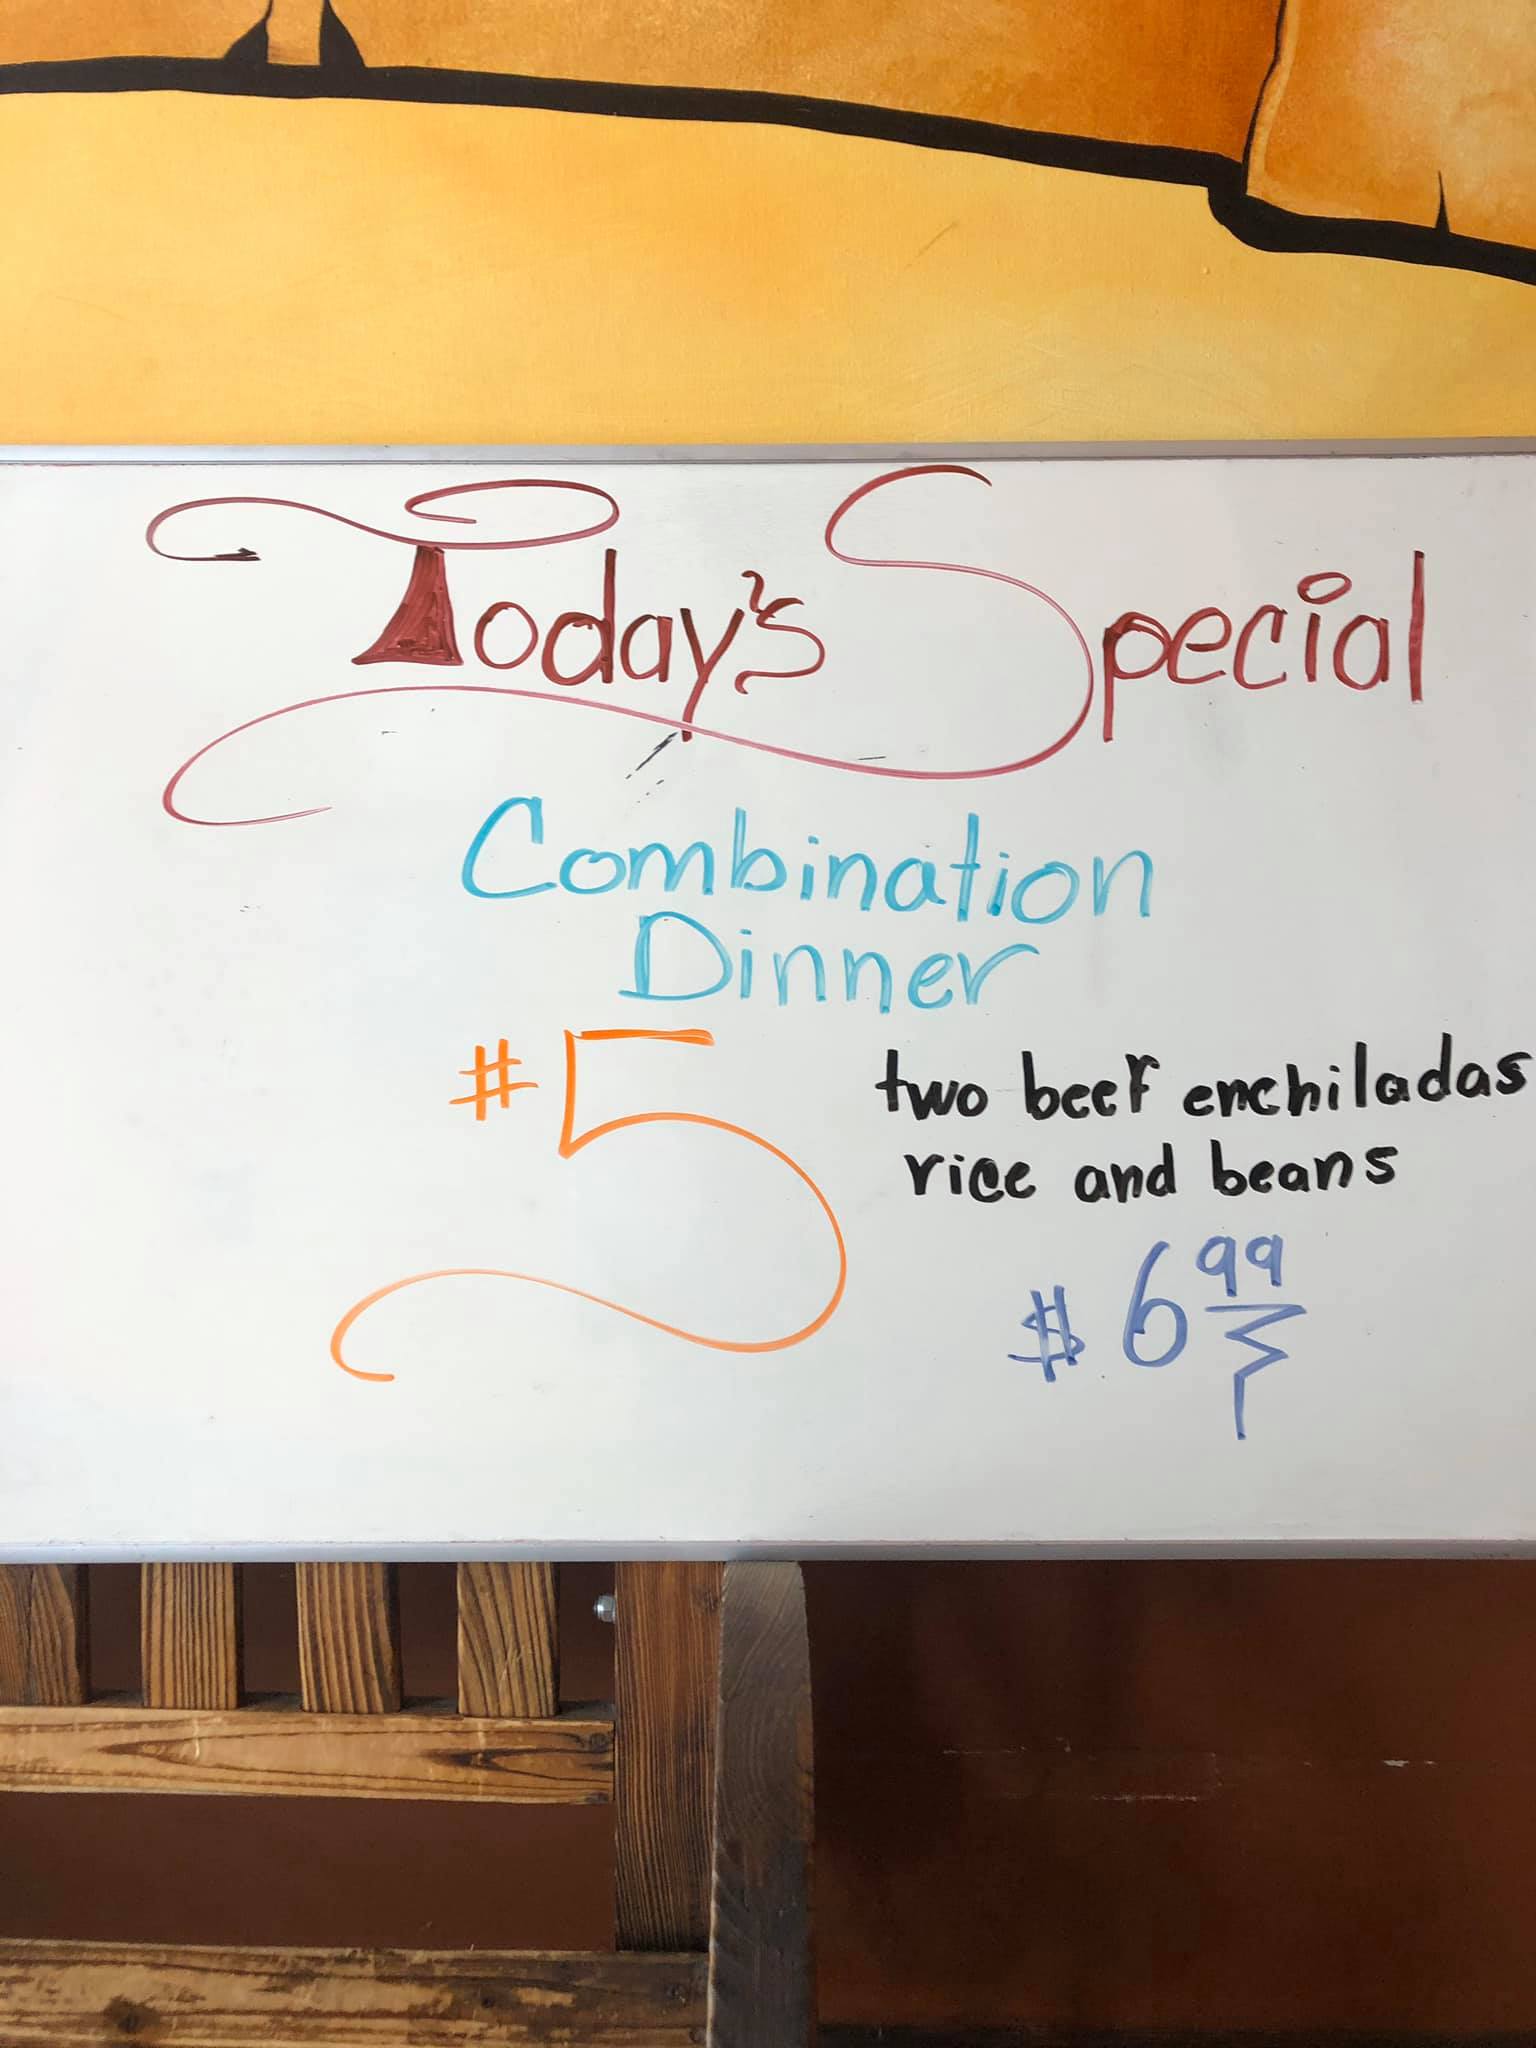 Today's Special
Combination
Dinner
#5
two beef enchiladas
rice and beans
$6.99